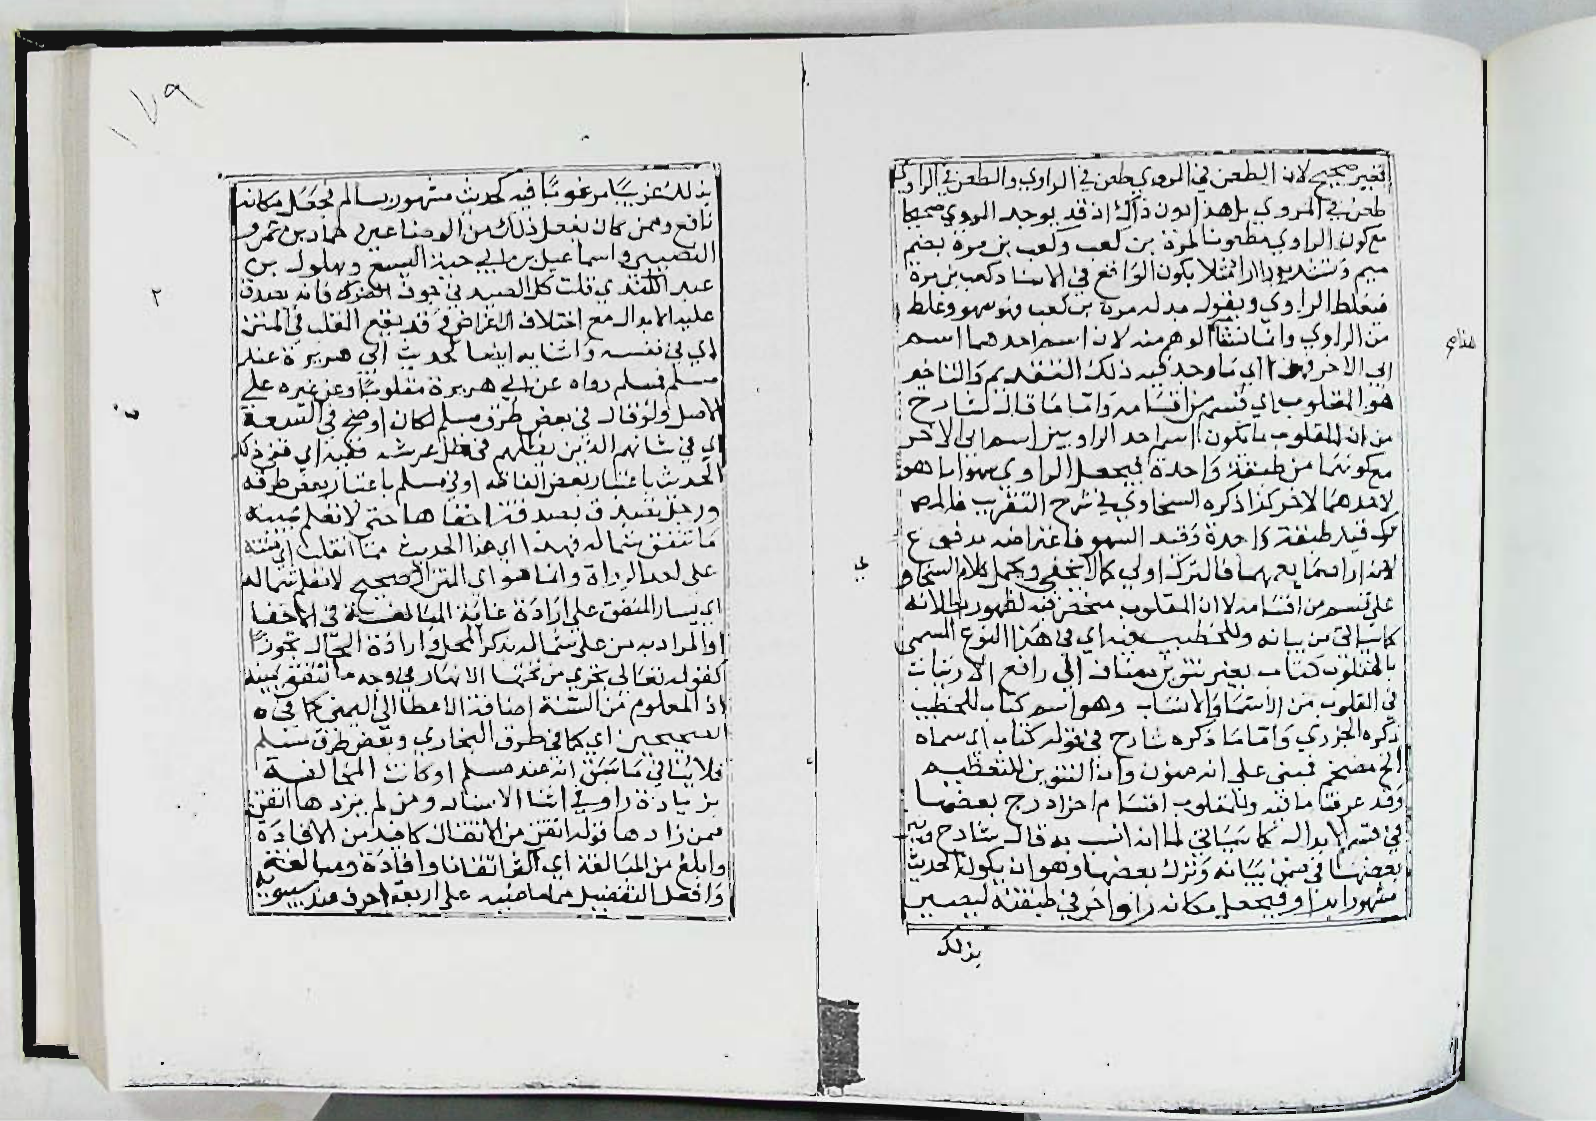 فغير صحيح لان الطعن في المروي طعن في الراوي والطعن في الراوي
طعن في المروي بل هذا دون ذاك اذ قد يوجد المروي صحيحا
مع كون الراوي مطعونا لمرة بن كعب وكعب بن مرة بضم
ميم وتشديد راء مثلا يكون الواقع في الاسناد كعب بن مرة
فيغلط الراوي ويقول بدله مرة بن كعب وهو سهو وغلط
من الراوي وانما نشأ الوهم منه لان اسم احدهما اسم
ابي الاخر فهذا اي ما وجد فيه ذلك التقديم والتاخير
هو المقلوب اي قسم من اقسامه واما ما قاله شارح
من ان المقلوب ما يكون اسم احد الراويين اسم ابي الاخر
مع كونهما من طبقة واحدة فيجعل الراوي سهوا ما هو
لاحدهما لاخر كذا ذكره السخاوي في شرح التقريب فالمص
ترك قيد طبقة واحدة وقيد السهو فاعتراضه مدفوع
لانه اراد ما يعمهما فالترك اولى كما لا يخفى ويحمل كلام السخاوي
على قسم من اقسامه لا ان المقلوب منحصر فيه لظهور بطلانه
كما سياتي من بيانه وللخطيب فيه اي في هذا النوع المسمى
بالمقلوب كتاب بغير تنوين مضاف الى رافع الارتياب
في المقلوب من الاسماء والانساب وهو اسم كتاب للخطيب
ذكره الجزري واما ما ذكره شارح في قوله كتاب اي سماه
الخ فمبنى على انه منون وان التنوين للتعظيم
وقد عرفت ما فيه وللمقلوب اقسام اخر ادرج بعضها
في قسم الابدال كما سياتي لما انه انسب به قال شارح وبين
بعضها في ضمن بيانه وترك بعضها وهو ان يكون الحديث
مشهورا براو فيجعل مكانه راو اخر في طبقته ليصير
بذلك
١٧٩
بذلك غريبا مرغوبا فيه كحديث مشهور بسالم فجعل مكانه
نافع وممن كان يفعل ذلك من الوضاعين حماد بن عمرو
النصيبي واسماعيل بن ابي حية اليسع وبهلول بن
عبيد الكندي قلت كل الصيد في جوف الفرا فانه يصدق
عليه الابدال مع اختلاف الاغراض وقد يقع القلب في المتن
اي في نفسه واثنايه ايضا كحديث ابي هريرة عند
مسلم فمسلم رواه عن ابي هريرة مقلوبا وعن غيره على
الاصل ولو قال في بعض طرق مسلم لكان اوضح في السبعة
اي في شانهم الذين يظلهم في ظل عرشه ففيه اي ففي ذلك
الحديث باعتبار بعض الفاظه او في مسلم باعتبار بعض طرقه
ورجل تصدق بصدقة اخفاها حتى لا تعلم يمينه
ما تنفق شماله فهذا اي هذا الحديث مما انقلب اي متنه
على احد الرواة وانما هو اي المتن الصحيح لا تعلم شماله
اي يسار المنفق على ارادة غاية المبالغة في الاخفا
او المراد به من على شماله بذكر المحل وارادة الحال تجوزا
كقوله تعالى تجري من تحتها الانهار في وجه ما تنفق يمينه
اذ المعلوم من السنة اضافة الاعطا الى اليمين كما في
الصحيحين اي كما في طرق البخاري وبعض طرق مسلم
فلا ينافي ما سبق انه عند مسلم او كانت المخالفة
بزيادة راو في اثنا الاسناد ومن لم يزدها اتقن
ممن زادها قوله اتقن من الاتقان كافيد من الافادة
وابلغ من المبالغة اي اكثر اتقانا وافادة ومبالغة
وافعل التفضيل مما ماضيه على اربعة احرف عند سيبويه